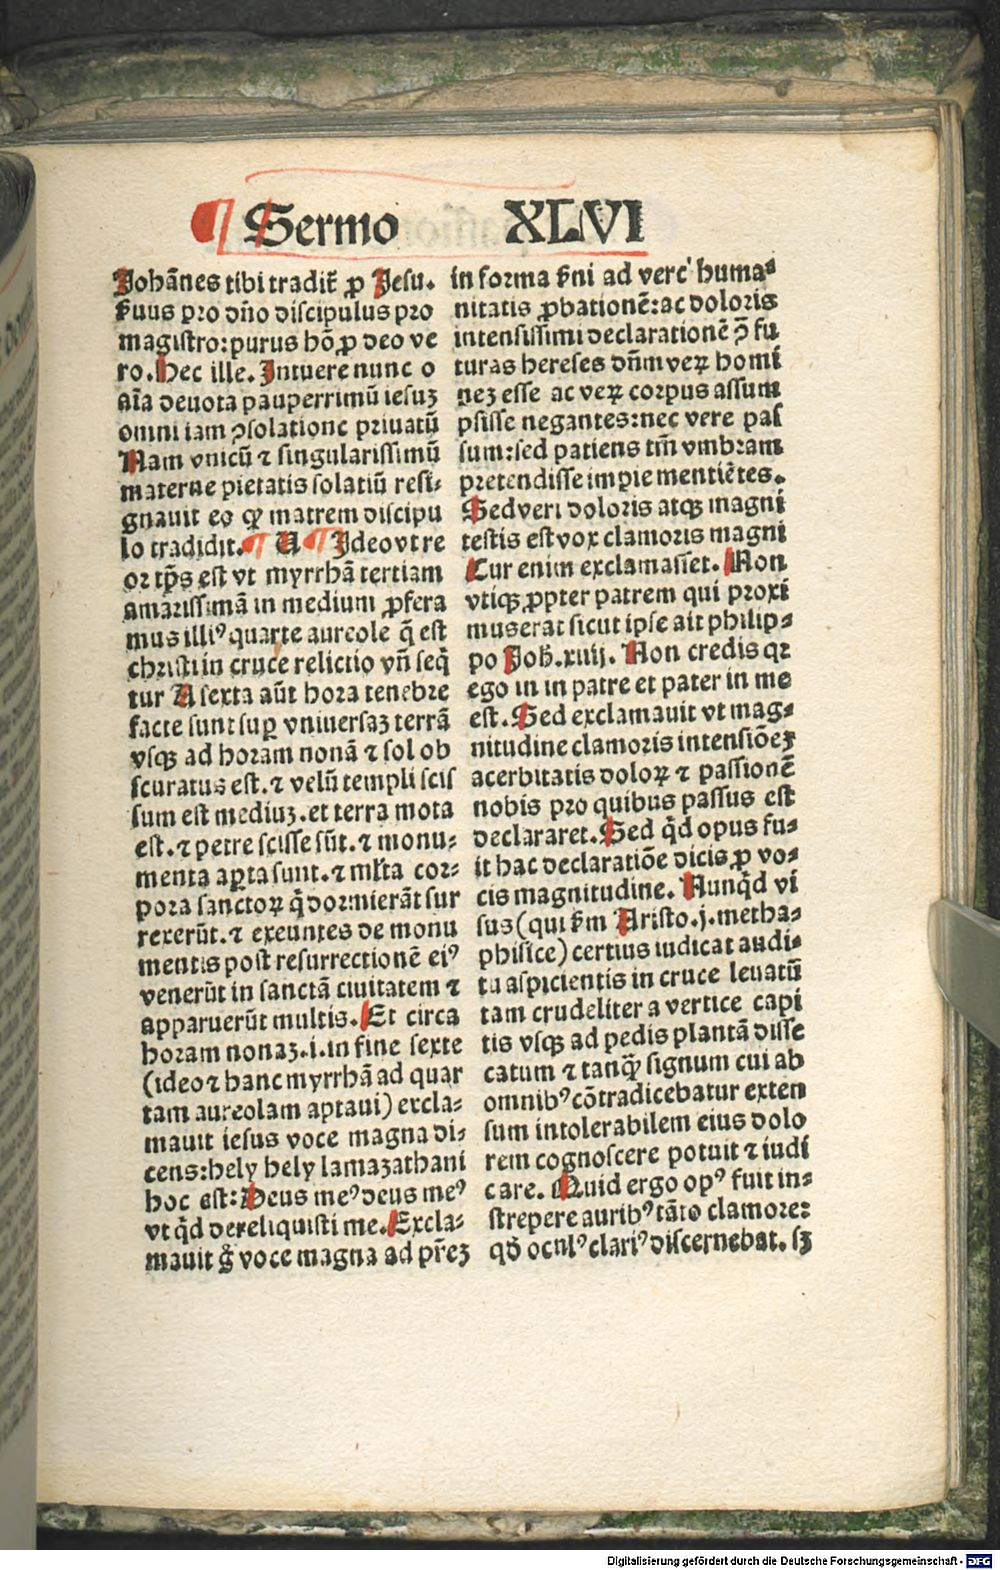 ¶ Sermo XLVI
Johānes tibi tradit̄ ꝓ Jesu.
ẜuus pro dn̄o discipulus pro
magistro:purus hō ꝓ deo ve
ro. Hec ille. Intuere nunc o
aīa deuota pauperrimū iesuꝫ
omni iam ꝯsolatione priuatū
Nam vnicū ⁊ singularissimū
materne pietatis solatiū resi⸗
gnauit eo ꝙ matrem discipu
lo tradidit. ¶ A ¶ Ideo vt re
or tp̄s est vt myrrhā tertiam
amarissimā in medium ꝓfera
mus illiꝰ quarte aureole q̄ est
christi in cruce relictio vn̄ seq̄
tur A sexta aūt hora tenebre
facte sunt suꝑ vniuersaꝫ terrā
vsqꝫ ad horam nonā ⁊ sol ob
scuratus est. ⁊ velū templi scis
sum est mediuꝫ. et terra mota
est. ⁊ petre scisse sūt. ⁊ monu⸗
menta aꝑta sunt. ⁊ ml̄ta cor⸗
pora sanctoꝝ q̄ dormierāt sur
rexerūt. ⁊ exeuntes de monu
mentis post resurrectionē eiꝰ
venerūt in sanctā ciuitatem ⁊
apparuerūt multis. Et circa
horam nonaꝫ .i. in fine sexte
(ideo ⁊ hanc myrrhā ad quar
tam aureolam aptaui) excla⸗
mauit iesus voce magna di⸗
cens: hely hely lamazathani
hoc est: Deus meꝰ deus meꝰ
vt qd̄ dereliquisti me. Excla⸗
mauit g̊ voce magna ad pr̄eꝫ
in forma ẜui ad verē huma⸗
nitatis ꝓbationē: ac doloris
intensissimi declarationē ꝯ̄ fu
turas hereses dn̄m veꝝ homi
neꝫ esse ac veꝝ corpus assum
psisse negantes: nec vere pas
sum: sed patiens tm̄ vmbram
pretendisse impie mentiētes.
Sed veri doloris atqꝫ magni
testis est vox clamoris magni
Cur enim exclamasset. Non
vtiqꝫ ꝓpter patrem qui proxi
mus erat sicut ipse ait philip⸗
po Joh̄. xiiij. Non credis qꝛ
ego in in patre et pater in me
est. Sed exclamauit vt mag⸗
nitudine clamoris intensiōeꝫ
acerbitatis doloꝝ ⁊ passionē
nobis pro quibus passus est
declararet. Sed qd̄ opus fu⸗
it hac declaratiōe dicis ꝓ vo⸗
cis magnitudine. Nunqd̄ vi
sus (qui ẜm Aristo. j. metha⸗
phisice) certius iudicat audi⸗
tu aspicientis in cruce leuatū
tam crudeliter a vertice capi
tis vsqꝫ ad pedis plantā disse
catum ⁊ tanqꝫ signum cui ab
omnibꝰ cōtradicebatur exten
sum intolerabilem eius dolo
rem cognoscere potuit ⁊ iudi
care. Quid ergo opꝰ fuit in⸗
strepere auribꝰ tāto clamore:
qd̄ oculꝰ clariꝰ discernebat. sꝫ
Digitalisierung gefördert durch die Deutsche Forschungsgemeinschaft - DFG